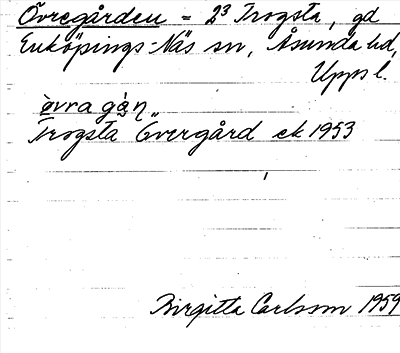 Övregården = 2³ Trogsta, gd
Enköpings-Näs sn, Åsunda hd,
Upps l.
òvra gàŋ
Trogsta Övergård ek 1953
Birgitta Carlsson 1959